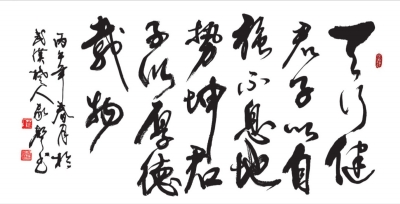 天行健
君子以自
强不息地
势坤君
子以厚德
载物
丙午年春月於
武汉